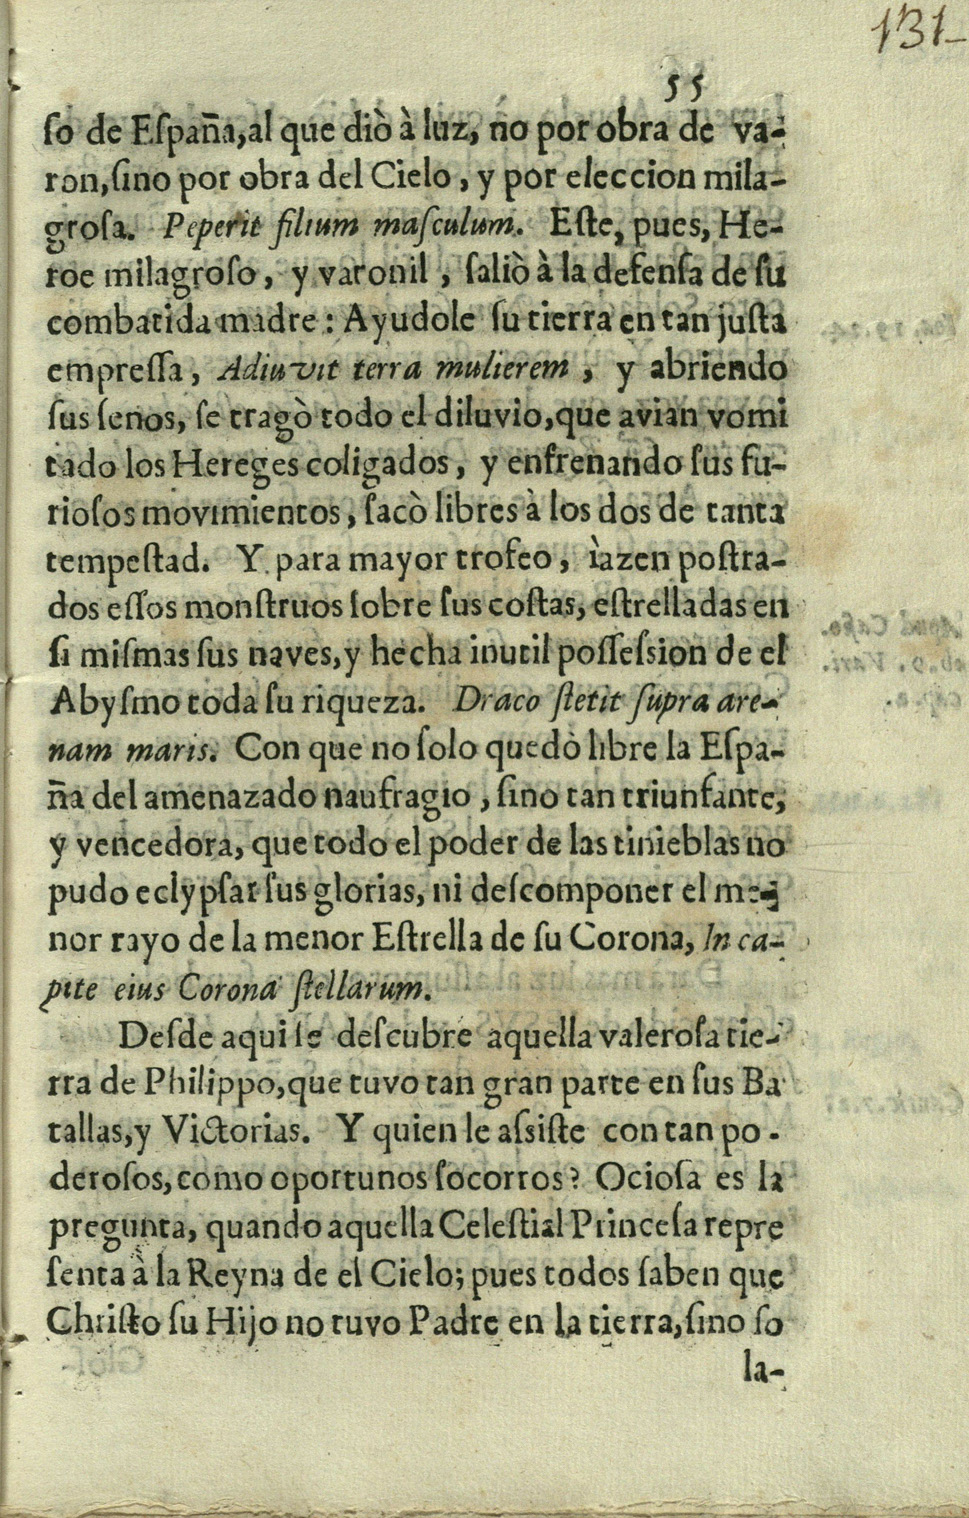 131
55
ſo de Eſpaña,al que diò à luz, no por obra de va-
ron,ſino por obra del Cielo, y por eleccion mila-
groſa. Peperit filium maſculum. Eſte, pues, He-
roe milagroſo, y varonil, ſaliò à la defenſa de ſu
combatida madre: Ayudole ſu tierra en tan juſta
empreſſa, Adiuvit terra mulierem, y abriendo
ſus ſenos, ſe tragò todo el diluvio,que avian vomi
tado los Hereges coligados, y enfrenando ſus fu-
rioſos movimientos, ſacò libres à los dos de tanta
tempeſtad. Y para mayor trofeo, ìazen poſtra-
dos eſſos monſtruos ſobre ſus coſtas, eſtrelladas en
ſi miſmas ſus naves,y hecha inutil poſſeſsion de el
Abyſmo toda ſu riqueza. Draco ſtetit ſupra are-
nam maris. Con que no ſolo quedò libre la Eſpa-
ña del amenazado naufragio, ſino tan triunfante,
y vencedora, que todo el poder de las tinieblas no
pudo eclypſar ſus glorias, ni deſcomponer el me-
nor rayo de la menor Eſtrella de ſu Corona, In ca-
pite eius Corona ſtellarum.
Deſde aqui ſe deſcubre aquella valeroſa tie-
rra de Philippo,que tuvo tan gran parte en ſus Ba
tallas,y Victorias. Y quien le aſsiſte con tan po-
deroſos, como oportunos ſocorros? Ocioſa es la
pregunta, quando aquella Celeſtial Princeſa repre
ſenta à la Reyna de el Cielo; pues todos ſaben que
Chriſto ſu Hijo no tuvo Padre en la tierra,ſino ſo
la-